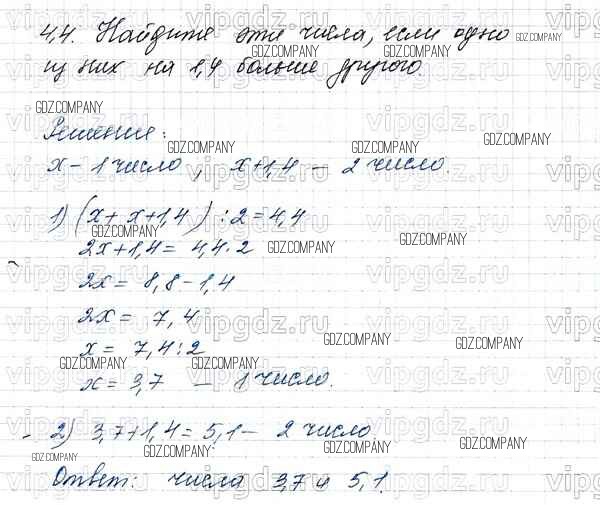 4,4. Найдите эти числа, если одно
из них на 1,4 больше другого.
Решение:
х – 1 число, х+1,4 – 2 число
1) (х + х+1,4) : 2 = 4,4
2х+1,4 = 4,4·2
2х = 8,8 – 1,4
2х = 7,4
х = 7,4:2
х = 3,7 – 1 число.
2) 3,7+1,4 = 5,1 – 2 число
Ответ: числа 3,7 и 5,1.